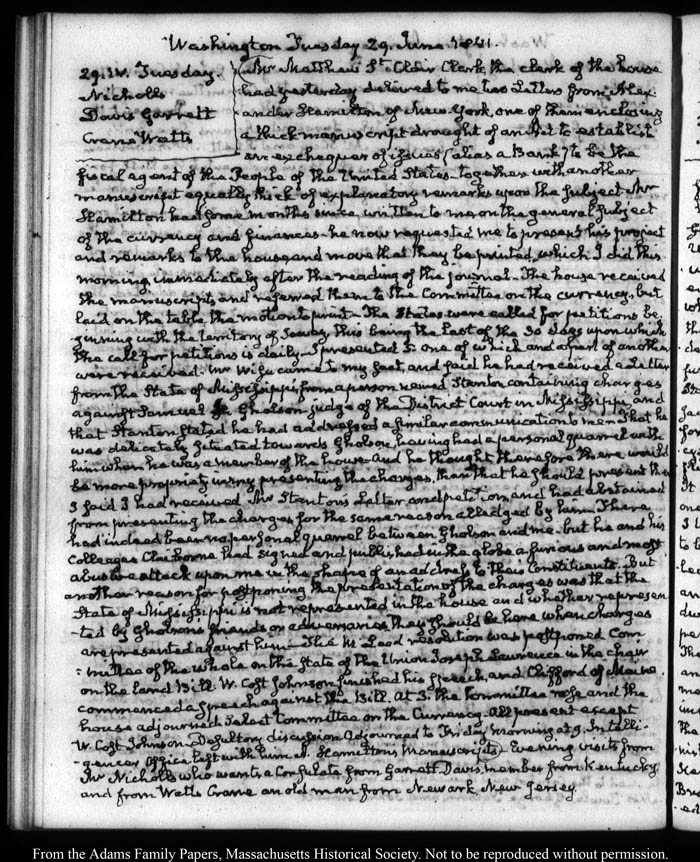 Washington Tuesday 29. June 1841.
29. IV. Tuesday.
Nicholls
Davis Garrett
Crane Watts
Mr Matthew St. Clair Clark, the clerk of the house
had yesterday delivered to me two Letters from Alex-
ander Hamilton of New-York, one of them enclosing
a thick manuscript draught of an Act to establish
an exchequer of issues (alias a Bank) to be the
fiscal agent of the People of the United States, together with another
manuscript equally thick of explanatory remarks upon the subject. Mr
Hamilton had some months since written to me on the general subject
of the currency and finances. he now requested me to present his project
and remarks to the house and move that they be printed, which I did this
morning immediately after the reading of the journal. The house received
the manuscripts and referred them to the Committee on the currency, but
laid on the table the motion to print. The States were called for petitions be-
ginning with the territory of Iowa, this being the last of the 30 days upon which
the call for petitions is daily. I presented 3. one of which and a part of another
were received. Mr Wise came to my seat, and said he had received a Letter
from the State of Mississippi, from a person named Stanton containing charges
against Samuel J. Gholson judge of the District Court in Mississippi, and
that Stanton stated he had addressed a similar communication to me. That he
was delicately situated towards Gholson, having had a personal quarrel with
him when he was a member of the house. And he thought therefore there would
be more propriety in my presenting the charges, than that he should present them
I said I had received Mr Stanton's Letter and petition, and had abstained
from presenting the charges for the same reason alledged by him. There
had indeed been no personal quarrel between Gholson and me. but he and his
Colleague Claiborne had signed and published in the Globe a furious and most
abusive attack upon me in the shape of an address to their Constituents. But
another reason for postponing the presentation of the charges was that the
State of Mississippi is not represented in the house and whether represen-
-ted by Gholson's friends or adversaries they should be here when charges
are presented against him. The resolution was postponed Com-
-mittee of the whole on the State of the Union Joseph Lawrence in the chair
on the land Bill. W. Cost Johnson finished his speech, and Clifford of Maine
commenced a speech against the Bill. At 3. the Committee rose and the
house adjourned. Select Committee on the Currency. All present except
W. Cost Johnson. Desultory discussion. Adjourned to Friday morning at 9. Intelli-
-gencer Office, left with him A. Hamilton's Manuscript(s). Evening visits from
Mr Nicholls who wants a Consulate from Garrett Davis, member from Kentucky
and from Watts Crane an old man from Newark New Jersey.
From the Adams Family Papers, Massachusetts Historical Society. Not to be reproduced without permission.